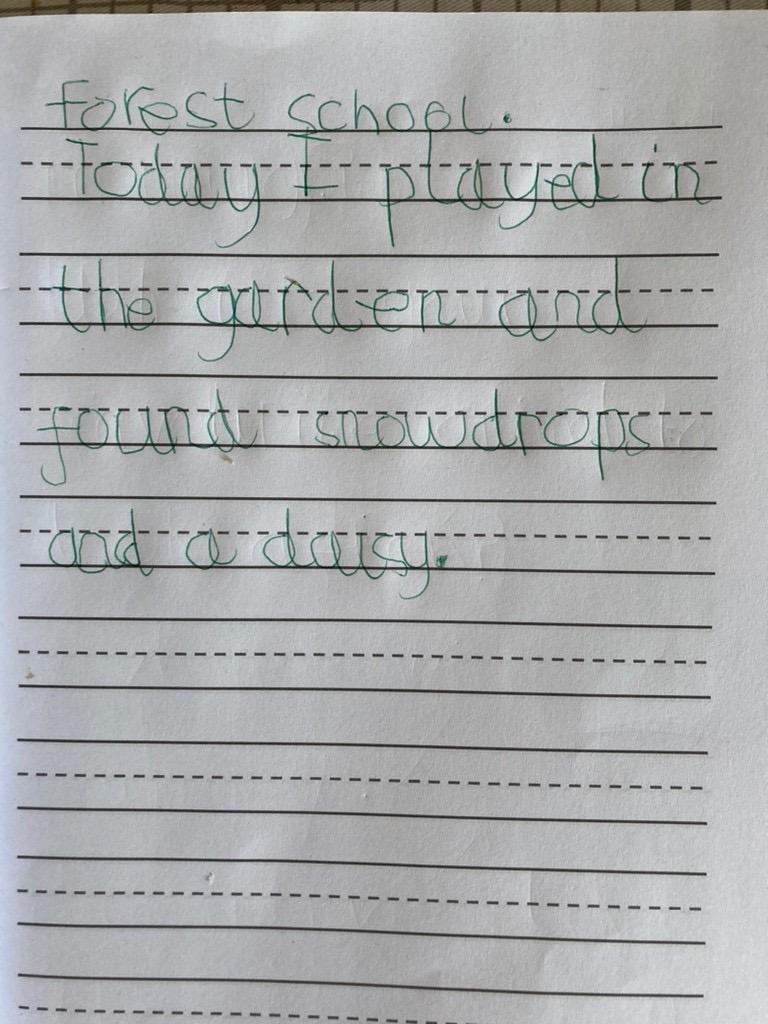 Forest school.
Today I played in
the garden and
found snowdrops
and a daisy.